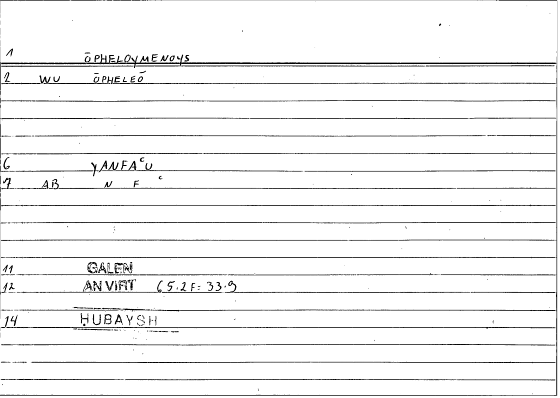 1 ŌPHELOYMENOYS
2 WU ŌPHELEŌ
6 YANFAᶜU
7 AB N F ᶜ
11 GALEN
12 AN VIRT 65.2F: 33.9
14 HUBAYSH